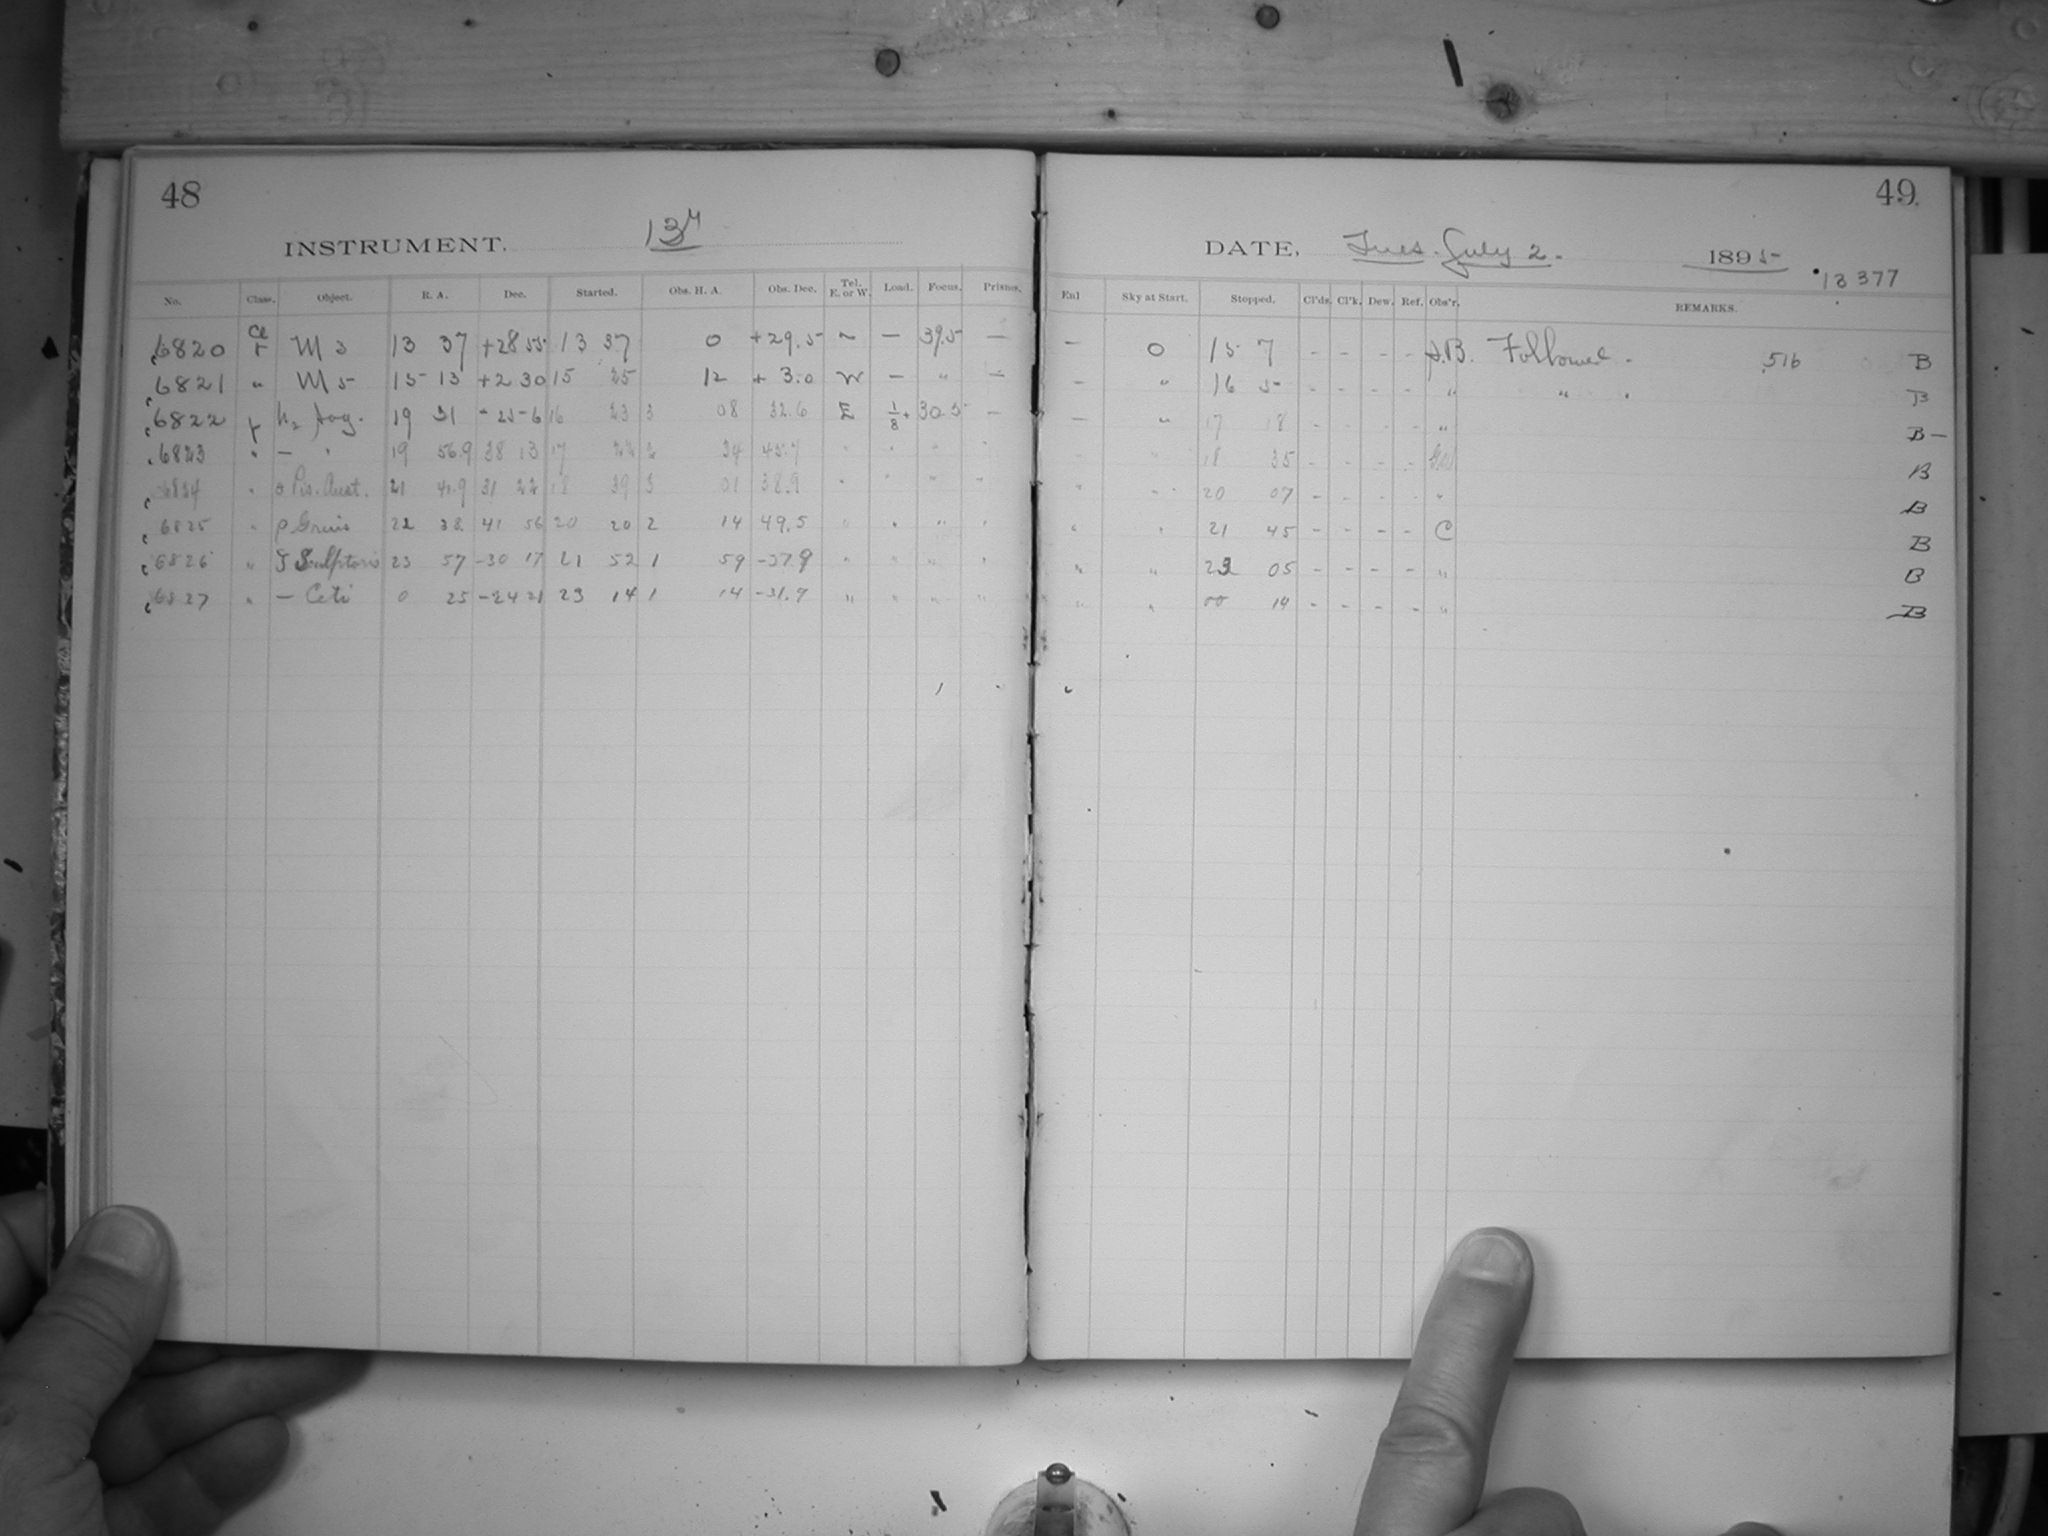 48
INSTRUMENT. 13"
No. Class. Object. R. A. Dec. Started. Obs. H. A. Obs. Dec. Tel. E. or W. Load. Focus. Prisms.
6820 Cl r M 3 13 37 +28 55 13 37 0 +29.5 ~ — 39.5 —
6821 " M 5 15 13 +2 30 15 25 12 + 3.0 W — " —
6822 r h₂ Sag. 19 31 -25 6 16 23 3 08 32.6 E 1/8 30.5 —
6823 " — " 19 56.9 38 13 17 22 2 34 45.7 " " " "
6824 " Pis. Aust. 21 41.9 31 22 18 39 3 01 38.9 " " " "
6825 " ρ Gruis 22 38 41 56 20 20 2 14 49.5 " " " "
6826 " Sculptoris 23 57 -30 17 21 52 1 59 -37.9 " " " "
6827 " — Ceti 0 25 -24 21 23 14 1 14 -31.7 " " " "
49.
DATE, Tues. July 2. 1895
13377
Enl Sky at Start. Stopped. Cl'ds. Cl'k. Dew. Ref. Obs'r. REMARKS.
— 0 15 7 - - - - Followed. 516 B
— " 16 5 - - - - " " . B
— " 17 18 - - - - " B —
" " 18 35 - - - - B
" " 20 07 - - - - " B
" " 21 45 - - - - C B
" " 05 - - - - " B
" " 00 14 - - - - " B